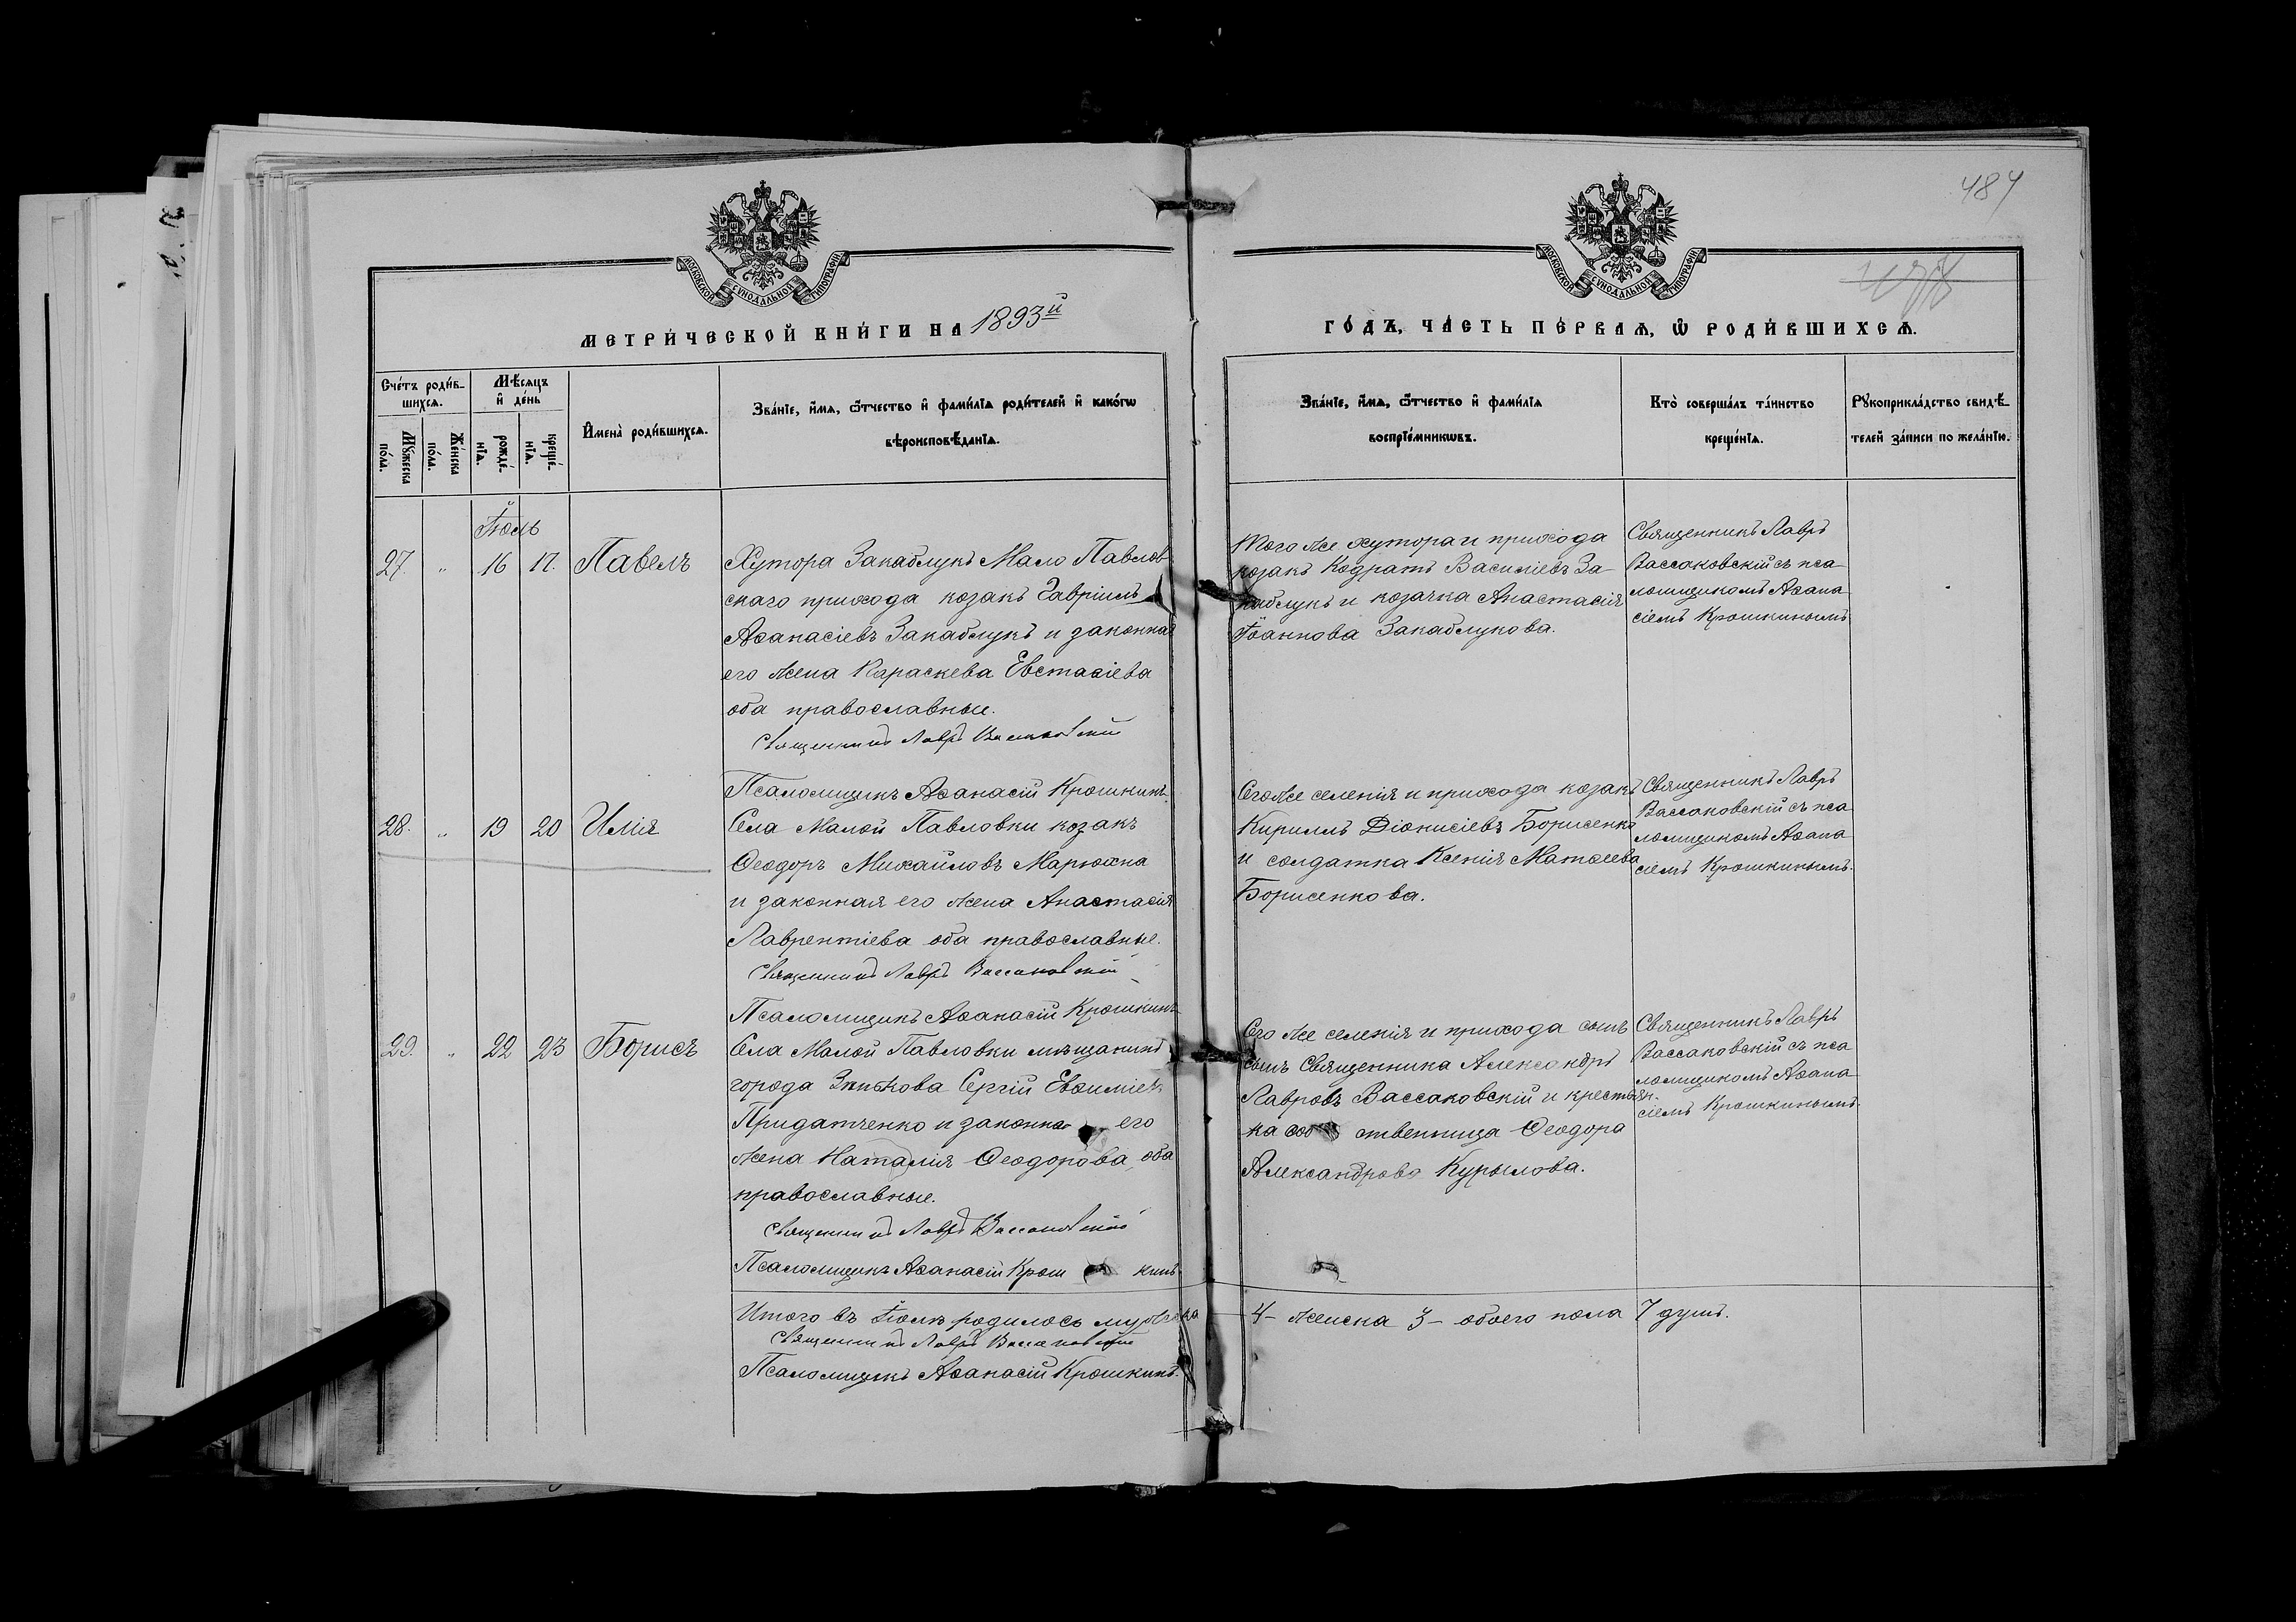 484
МОСКОВСКОЙ СѴНОДАЛЬНОЙ ТИПОГРАФІИ
МОСКОВСКОЙ СѴНОДАЛЬНОЙ ТИПОГРАФІИ
МЕТРИ́ЧЕСКОЙ КНИ́ГИ НА 1893й
ГО́ДЪ, ЧА́СТЬ ПЕ́РВАѦ, Ѿ РОДИ́ВШИХСѦ.
Сче́тъ роди́в-
шихсѧ.
Мꙋ́жеска по́ла.
Же́нска по́ла.
Мѣ́сѧцъ
и҆ де́нь
рожде́-
нїѧ.
креще́-
нїѧ.
И҆мена̀ роди́вшихсѧ.
Зва́нїе, и҆́мѧ, ѻ҆́тчество и҆ фами́лїѧ роди́телей и҆ како́гѡ
вѣроисповѣ́данїѧ.
Зва́нїе, и҆́мѧ, ѻ҆́тчество и҆ фами́лїѧ
воспрїе́мникѡвъ.
Кто̀ соверша́лъ та́инство
креще́нїѧ.
Рꙋкоприкла́дство свидѣ́-
телей за́писи по жела́нїю.
Іюль
27. " 16 17. Павелъ
Хутора Закаблукъ Мало Павлов
скаго прихода козакъ Гавріилъ
Аѳанасіевъ Закаблукъ и законная
его жена Параскева Евстаѳіева
оба православные.
Священникъ Лавръ Вассаковскій
Псаломщикъ Аѳанасій Крошкинъ.
Того же хутора и прихода
козакъ Кодратъ Василіевъ За-
каблукъ и козачка Анастасія
Іоаннова Закаблукова.
Священникъ Лавръ
Вассаковскій съ пса
ломщикомъ Аѳана
сіемъ Крошкинымъ
28. " 19 20 Илія
Села Малой Павловки козакъ
Ѳеодоръ Михайловъ Марюхна
и законная его жена Анастасія
Лаврентіева оба православные.
Священникъ Лавръ Вассаковскій
Псаломщикъ Аѳанасій Крошкинъ
Сего же селенія и прихода козакъ
Кириллъ Діонисіевъ Борисенко
и солдатка Ксенія Матѳеева
Борисенкова.
Священникъ Лавръ
Вассаковскій съ пса
ломщикомъ Аѳана
сіемъ Крошкинымъ.
29. " 22 23 Борисъ
Села Малой Павловки мѣщанинъ
города Зѣнькова Сергій Евѳиміевъ
Придатченко и законная его
жена Наталія Ѳеодорова, оба
православные.
Священникъ Лавръ Вассаковскій
Псаломщикъ Аѳанасій Крош кинъ.
Сего же селенія и прихода сынъ
сынъ Священника Александръ
Лавровъ Вассаковскій и крестьян-
ка соб ственница Ѳеодора
Александрова Курылова.
Священникъ Лавръ
Вассаковскій съ пса
ломщикомъ Аѳана
сіемъ Крошкинымъ.
Итого въ Іюлѣ родилось мужеска 4 – женска 3 – обоего пола 7 душъ.
Священникъ Лавръ Вассаковскій
Псаломщикъ Аѳанасій Крошкинъ.